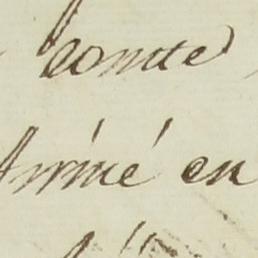 comte
Arrivé en